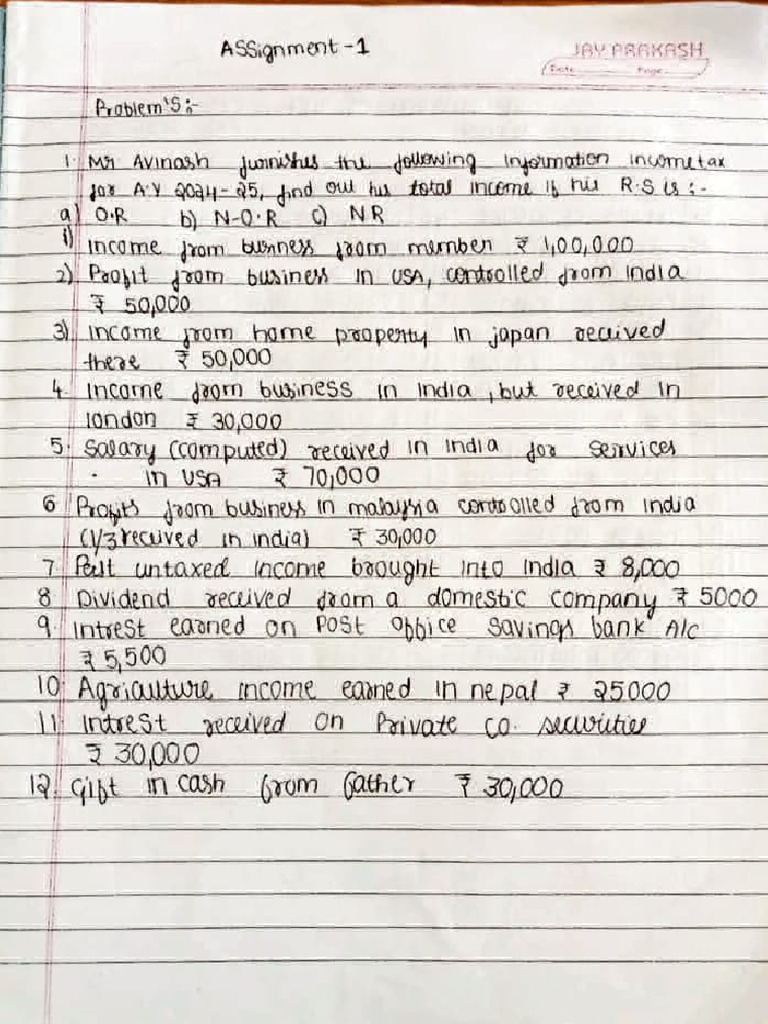 ASSignment -1
JAY PRAKASH
Date Page
Problem'S:-
1. Mr Avinash furnishes the following information incometax
for A.Y 2024-25, find out his total income if his R.S is :-
a) O.R b) N-O.R c) NR
1) Income from business from member ₹ 1,00,000
2) Profit from business in USA, controlled from india
₹ 50,000
3) income from home property in japan received
there ₹ 50,000
4. income from business in india, but received in
london ₹ 30,000
5. Salary (computed) received in india for services
in USA ₹ 70,000
6 Profits from business in malaysia controlled from india
(1/3 received in india) ₹ 30,000
7. Past untaxed income brought into india ₹ 8,000
8 Dividend received from a domestic company ₹ 5000
9. intrest earned on post office savings bank A/c
₹ 5,500
10. Agriculture income earned in nepal ₹ 25000
11. intrest received on Private co. securities
₹ 30,000
12. Gift in cash from father ₹ 30,000